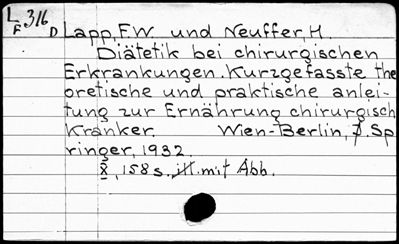 L 316
F D Lapp, F.W. und Neuffer, H.
Diätetik bei chirurgischen
Erkrankungen. Kurzgefasste the
oretische und praktische anlei-
tung zur Ernährung chirurgisch
Kranker. Wien-Berlin, J. Sp
ringer, 1932.
X, 158 s. ill. mit Abb.